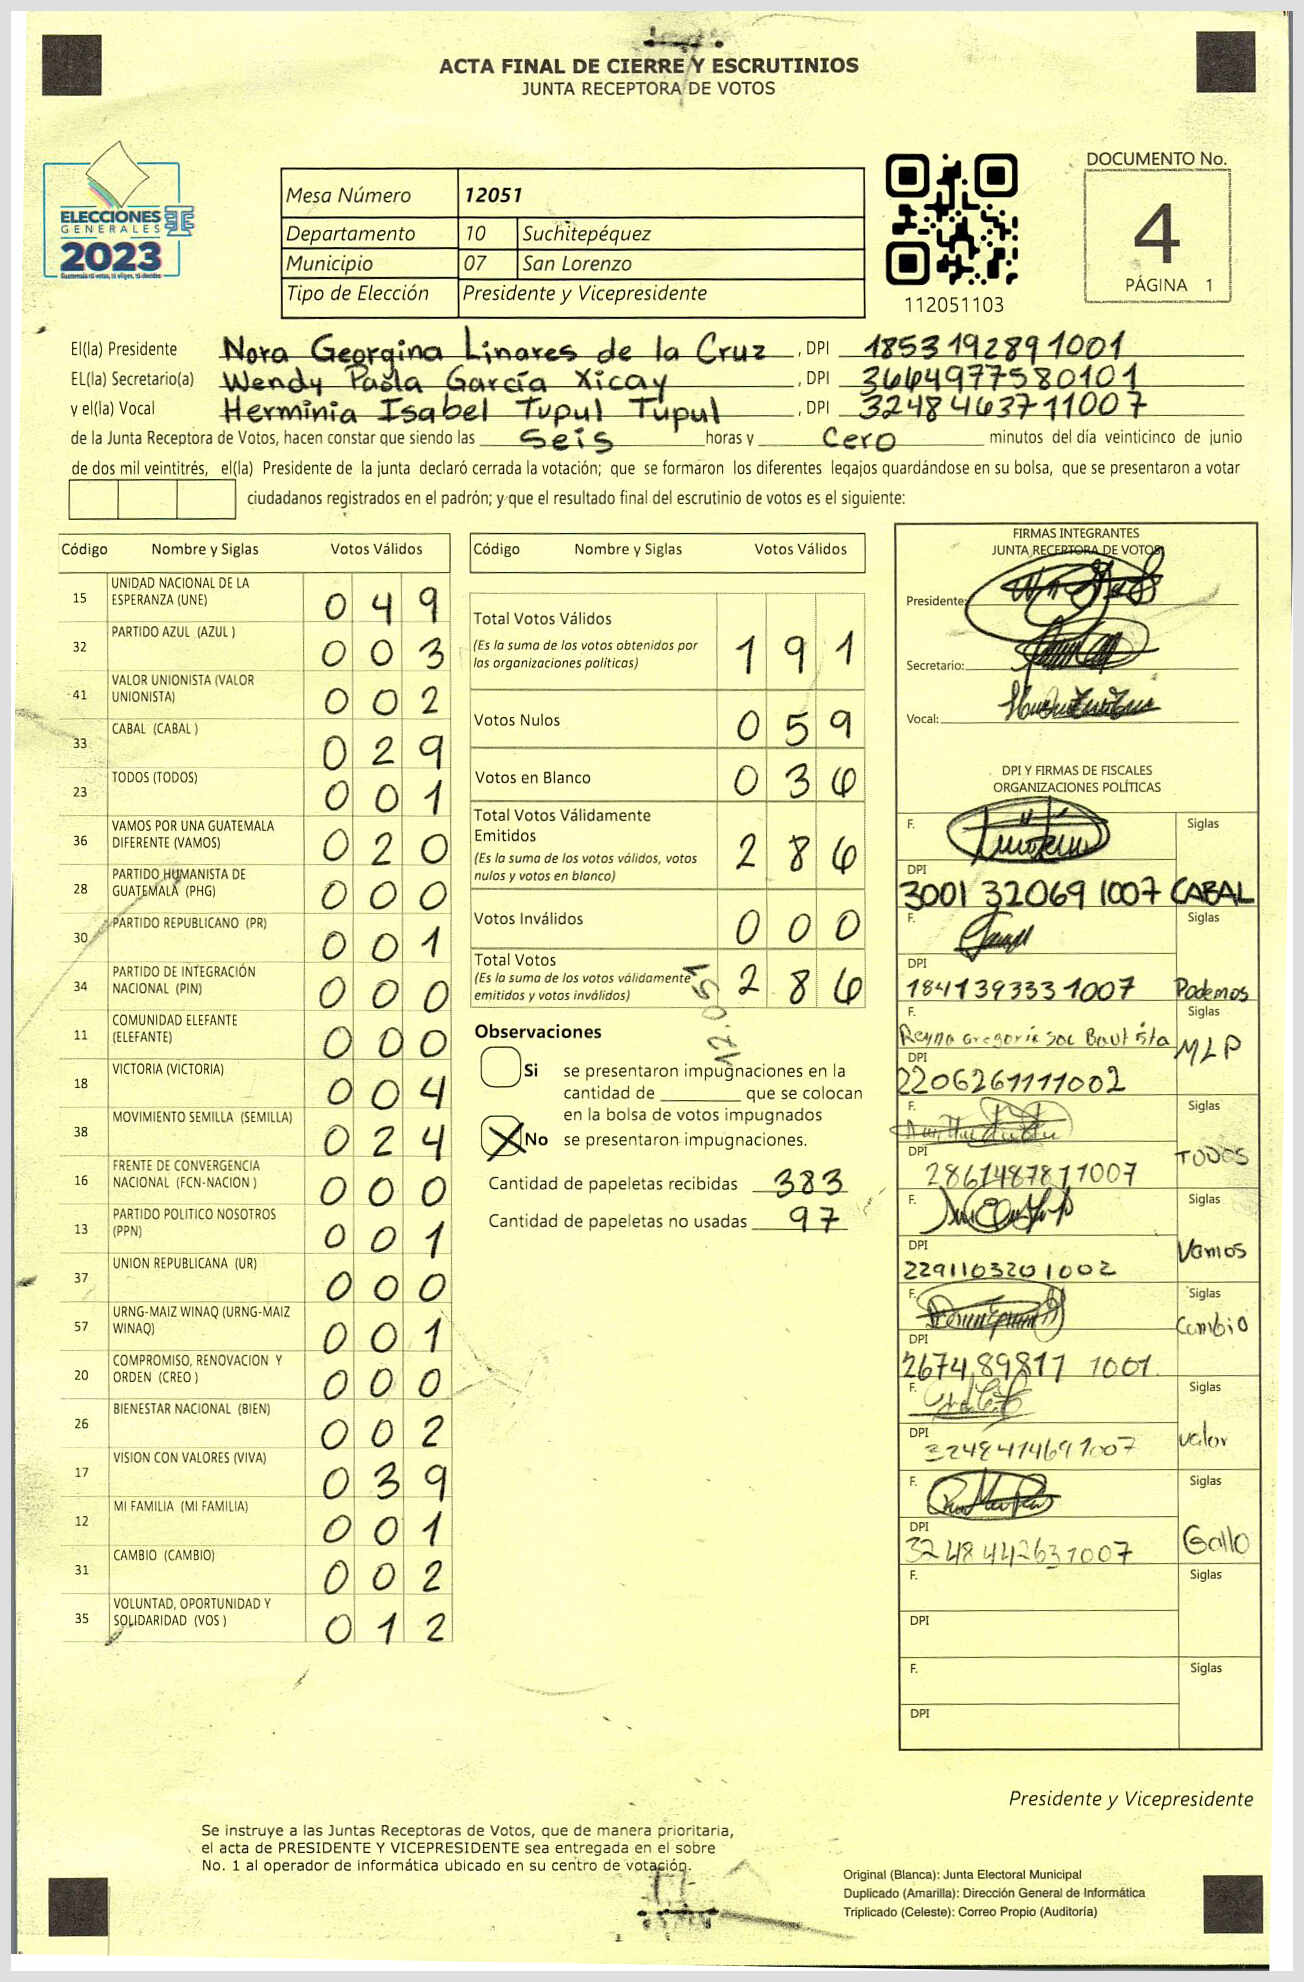 ACTA FINAL DE CIERRE Y ESCRUTINIOS
JUNTA RECEPTORA DE VOTOS
ELECCIONES
GENERALES
2023
Mesa Número 12051
Departamento 10 Suchitepéquez
Municipio 07 San Lorenzo
Tipo de Elección Presidente y Vicepresidente
112051103
DOCUMENTO No.
4
PÁGINA 1
El(la) Presidente Nora Georgina Linares de la Cruz, DPI 1853192891001
EL(la) Secretario(a) Wendy Paola García Xicay, DPI 3664977580101
y el(la) Vocal Herminia Isabel Tupul Tupul, DPI 3248463711007
de la Junta Receptora de Votos, hacen constar que siendo las Seis horas y Cero minutos del día veinticinco de junio
de dos mil veintitrés, el(la) Presidente de la junta declaró cerrada la votación; que se formaron los diferentes legajos guardándose en su bolsa, que se presentaron a votar
ciudadanos registrados en el padrón; y que el resultado final del escrutinio de votos es el siguiente:
Código Nombre y Siglas Votos Válidos
15 UNIDAD NACIONAL DE LA ESPERANZA (UNE) 049
32 PARTIDO AZUL (AZUL ) 003
41 VALOR UNIONISTA (VALOR UNIONISTA) 002
33 CABAL (CABAL ) 029
23 TODOS (TODOS) 001
36 VAMOS POR UNA GUATEMALA DIFERENTE (VAMOS) 020
28 PARTIDO HUMANISTA DE GUATEMALA (PHG) 000
30 PARTIDO REPUBLICANO (PR) 001
34 PARTIDO DE INTEGRACIÓN NACIONAL (PIN) 000
11 COMUNIDAD ELEFANTE (ELEFANTE) 000
18 VICTORIA (VICTORIA) 004
38 MOVIMIENTO SEMILLA (SEMILLA) 024
16 FRENTE DE CONVERGENCIA NACIONAL (FCN-NACION ) 000
13 PARTIDO POLITICO NOSOTROS (PPN) 001
37 UNION REPUBLICANA (UR) 000
57 URNG-MAIZ WINAQ (URNG-MAIZ WINAQ) 001
20 COMPROMISO, RENOVACION Y ORDEN (CREO ) 000
26 BIENESTAR NACIONAL (BIEN) 002
17 VISION CON VALORES (VIVA) 039
12 MI FAMILIA (MI FAMILIA) 001
31 CAMBIO (CAMBIO) 002
35 VOLUNTAD, OPORTUNIDAD Y SOLIDARIDAD (VOS ) 012
Código Nombre y Siglas Votos Válidos
Total Votos Válidos 191
(Es la suma de los votos obtenidos por
las organizaciones políticas)
Votos Nulos 059
Votos en Blanco 036
Total Votos Válidamente
Emitidos 286
(Es la suma de los votos válidos, votos
nulos y votos en blanco)
Votos Inválidos 000
Total Votos 286
(Es la suma de los votos válidamente
emitidos y votos inválidos)
12.051
Observaciones
Si se presentaron impugnaciones en la
cantidad de que se colocan
en la bolsa de votos impugnados
X No se presentaron impugnaciones.
Cantidad de papeletas recibidas 383
Cantidad de papeletas no usadas 97
FIRMAS INTEGRANTES
JUNTA RECEPTORA DE VOTOS
Presidente:
Secretario:
Vocal:
DPI Y FIRMAS DE FISCALES
ORGANIZACIONES POLÍTICAS
F. Siglas
DPI
3001 32069 1007 CABAL
F. Siglas
DPI
1841393331007 Podemos
F. Siglas
Reyna Gregoria Soc Bautista MLP
DPI
2206261111002
F. Siglas
DPI TODOS
2861487811007
F. Siglas
DPI Vamos
2291103201002
F. Siglas
Cambio
DPI
2674 89817 1001
F. Siglas
DPI Valor
3248414691007
F. Siglas
DPI Gallo
3248442631007
F. Siglas
DPI
F. Siglas
DPI
Presidente y Vicepresidente
Se instruye a las Juntas Receptoras de Votos, que de manera prioritaria,
el acta de PRESIDENTE Y VICEPRESIDENTE sea entregada en el sobre
No. 1 al operador de informática ubicado en su centro de votación.
Original (Blanca): Junta Electoral Municipal
Duplicado (Amarilla): Dirección General de Informática
Triplicado (Celeste): Correo Propio (Auditoría)